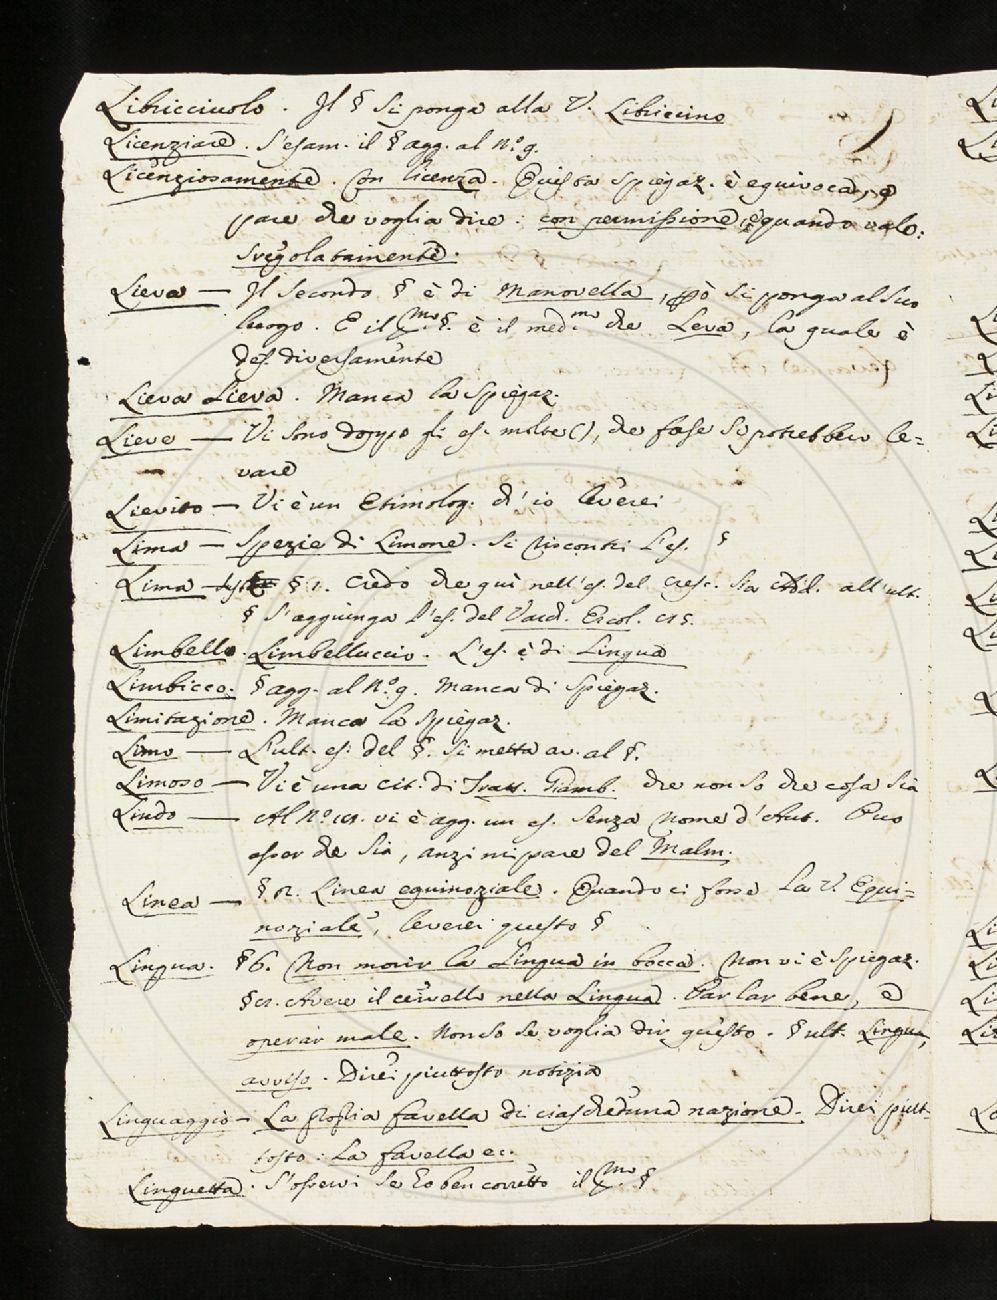 Libricciuolo. Il § si ponga alla V. Libriccino
Licenziare. S'esam. il § agg. al N.° 9.
Licenziosamente. Con licenza. Questa spiegaz. è equivoca, e
pare che voglia dire: con permissione, e quando vale:
sregolatamente.
Lieva — Il secondo § è di Manovella, però si ponga al suo
luogo. E il p.mo §. è il med.mo che Leva, la quale è
def. diversamente
Lieva Lieva. Manca la spiegaz.
Lieve — Vi sono doppo gli es. molte (), che forse si potrebbero le=
vare
Lievito — Vi è un Etimolog. ch'io leverei
Lima — Spezie di Limone. Si riscontri l'es. §
Lima — § 1. Credo che qui nell'es. del Cresc. sia Add. all'ult.
§ S'aggiunga l'es. del Varch. Ercol. 215.
Limbello. Limbelluccio. L'es. è di Lingua
Limbicco. § agg. al N.° 9. Manca di spiegaz.
Limitazione. Manca la spiegaz.
Limo — L'ult. es. del §. si metta av. al §.
Limoso — Vi è una cit. di Tratt. Giamb. che non so che cosa sia
Lindo — Al N.° vi è agg. un es. senza nome d'Aut. Può
esser che sia, anzi mi pare del Malm.
Linea — § 12. Linea equinoziale. Quando ci fosse la V. Equi=
noziale, leverei questo §
Lingua. § 6. Non morir la Lingua in bocca. Non vi è spiegaz.
§ Avere il cervello nella Lingua. Parlar bene, e
operar male. Non so se voglia dir questo. § ult. Lingua,
avviso. Direi piuttosto notizia
Linguaggio — La propria favella di ciascheduna nazione. Direi piut-
tosto: La favella ec.
Linguetta. S'osservi se è ben corretto il p.mo §